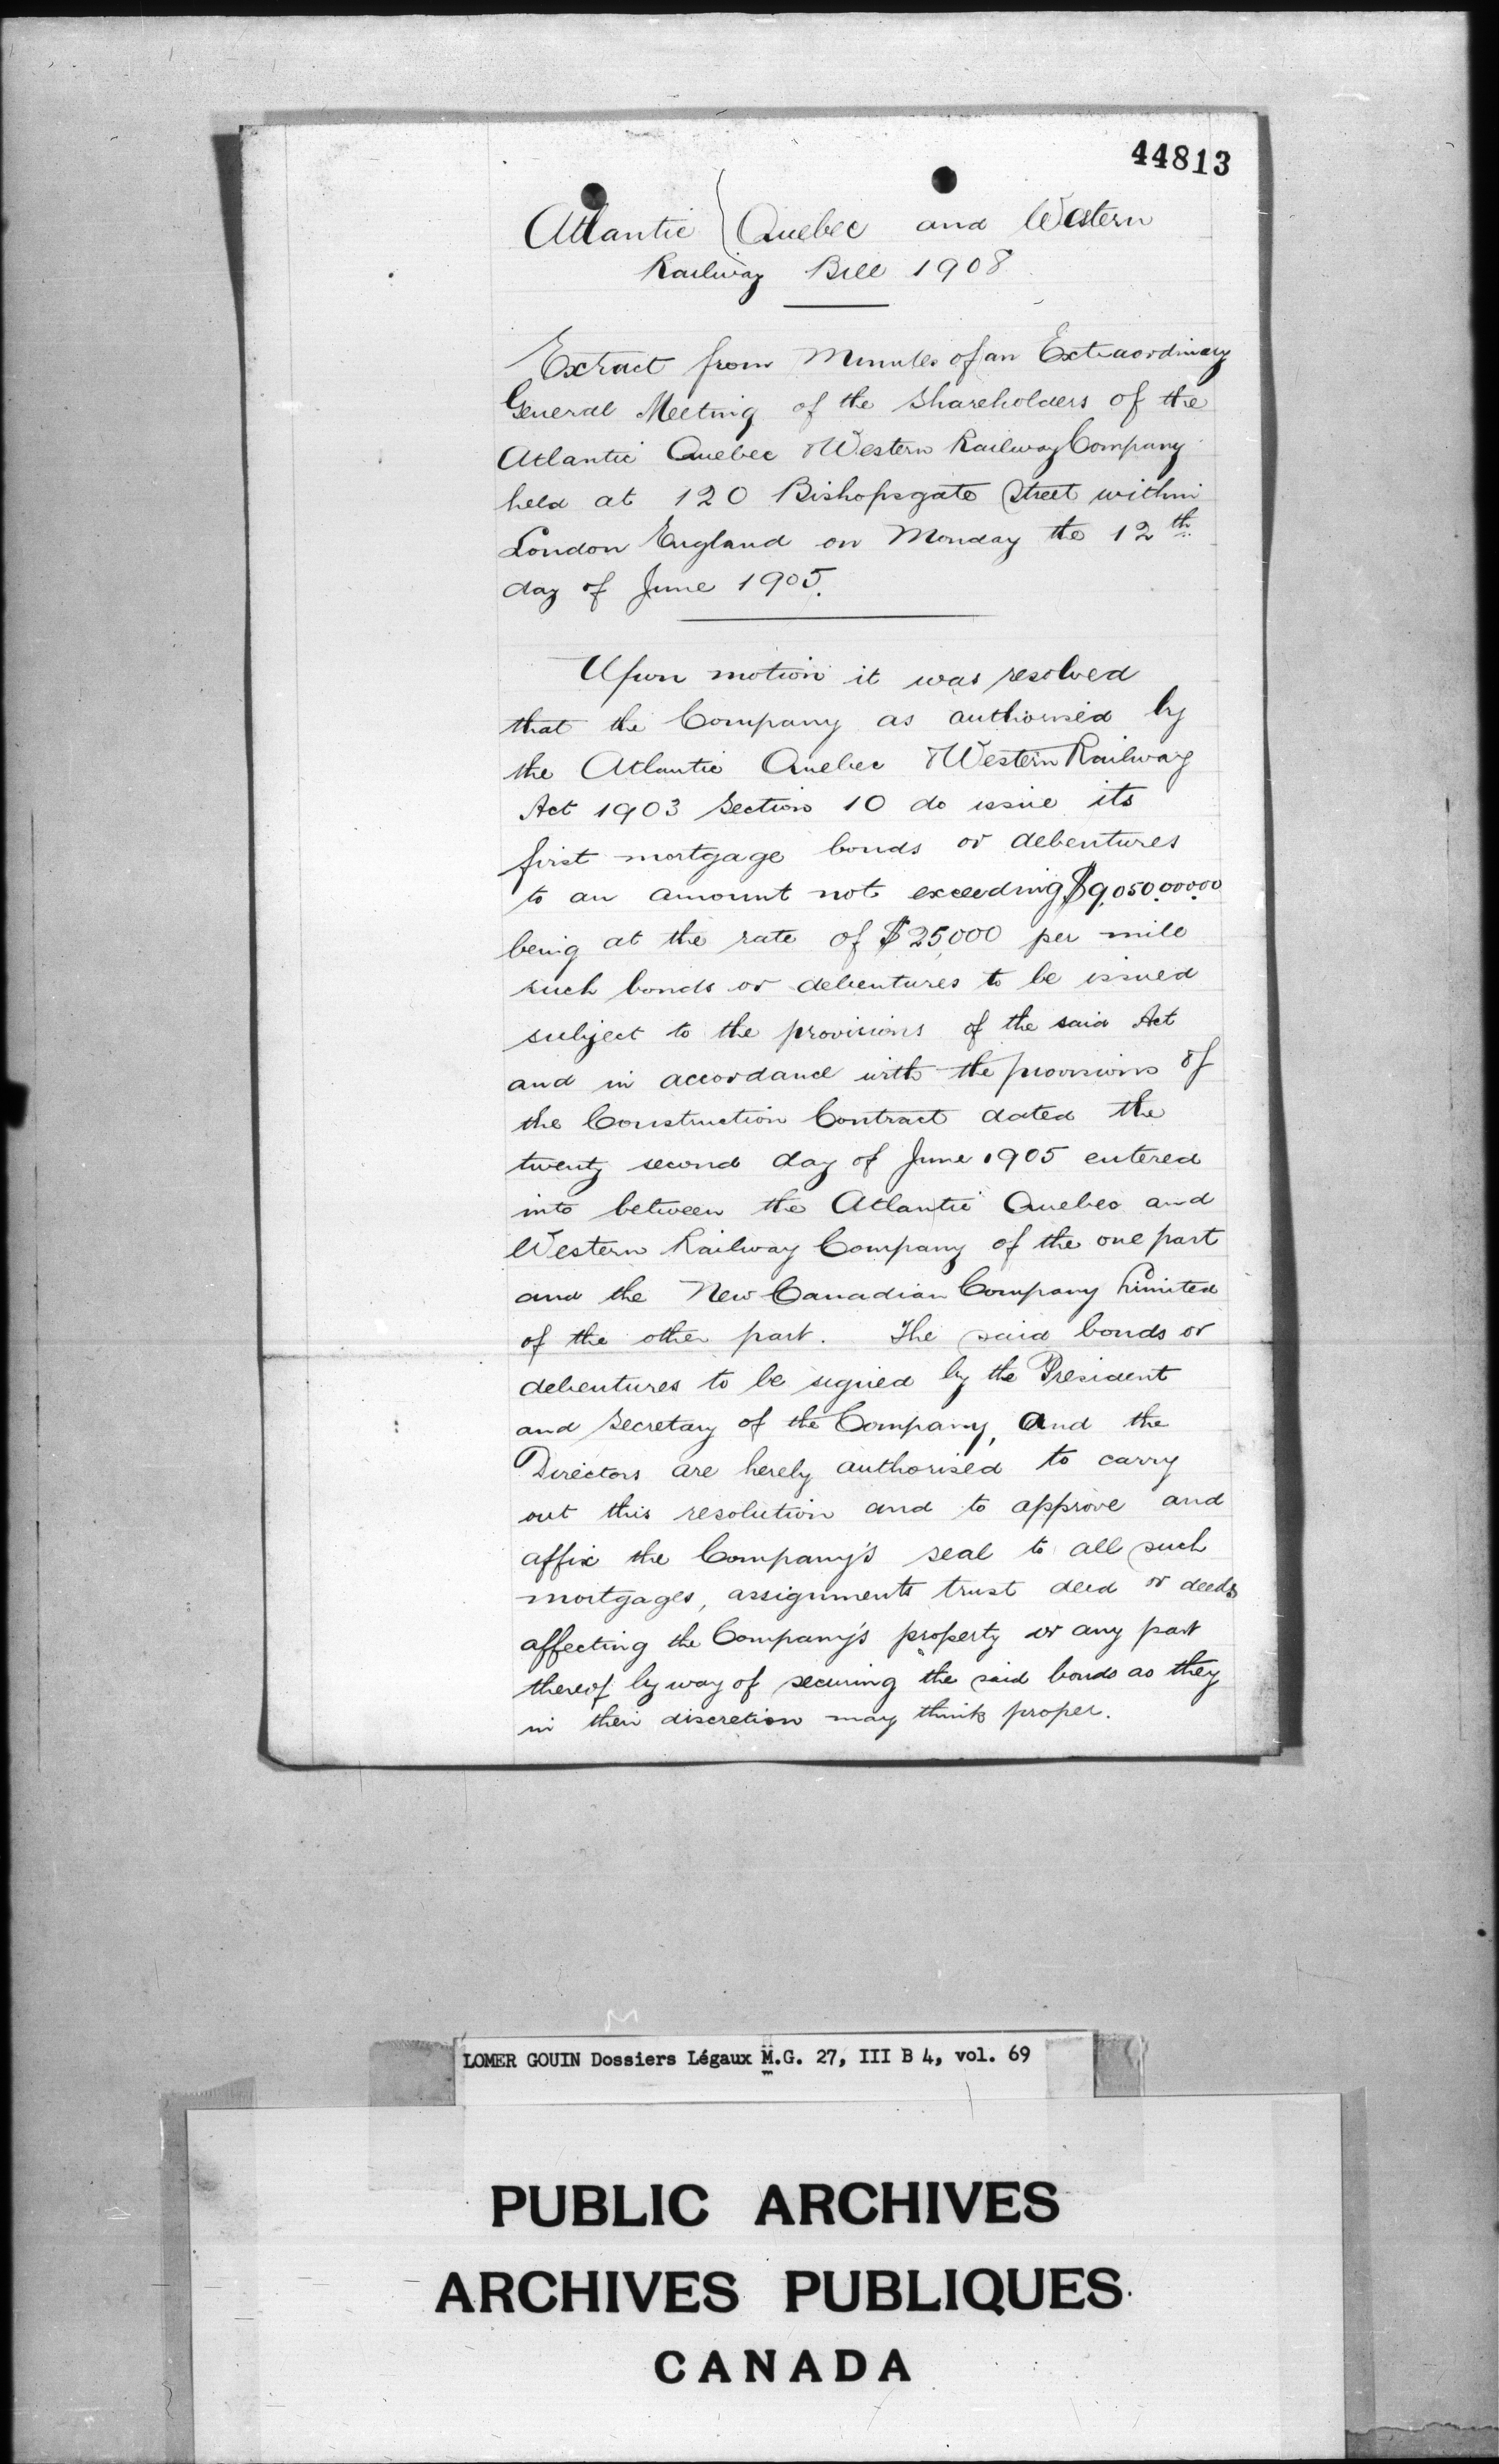 44813
Atlantic Quebec and Western
Railway Bill 1908
Extract from Minutes of an Extraordinary
General Meeting of the Shareholders of the
Atlantic Quebec & Western Railway Company
held at 120 Bishopsgate Street within
London England on Monday the 12th
day of June 1905.
Upon motion it was resolved
that the Company as authorised by
the Atlantic Quebec & Western Railway
Act 1903 Section 10 do issue its
first mortgage bonds or debentures
to an amount not exceeding $9,050,000.00
being at the rate of $25,000 per mile
such bonds or debentures to be issued
subject to the provisions of the said Act
and in accordance with the provisions of
the Construction Contract dated the
twenty second day of June 1905 entered
into between the Atlantic Quebec and
Western Railway Company of the one part
and the New Canadian Company Limited
of the other part. The said bonds or
debentures to be signed by the President
and Secretary of the Company, and the
Directors are hereby authorised to carry
out this resolution and to approve and
affix the Company's seal to all such
mortgages, assignments trust deed or deeds
affecting the Company's property or any part
thereof by way of securing the said bonds as they
in their discretion may think proper.
LOMER GOUIN Dossiers Légaux M.G. 27, III B 4, vol. 69
PUBLIC ARCHIVES
ARCHIVES PUBLIQUES
CANADA